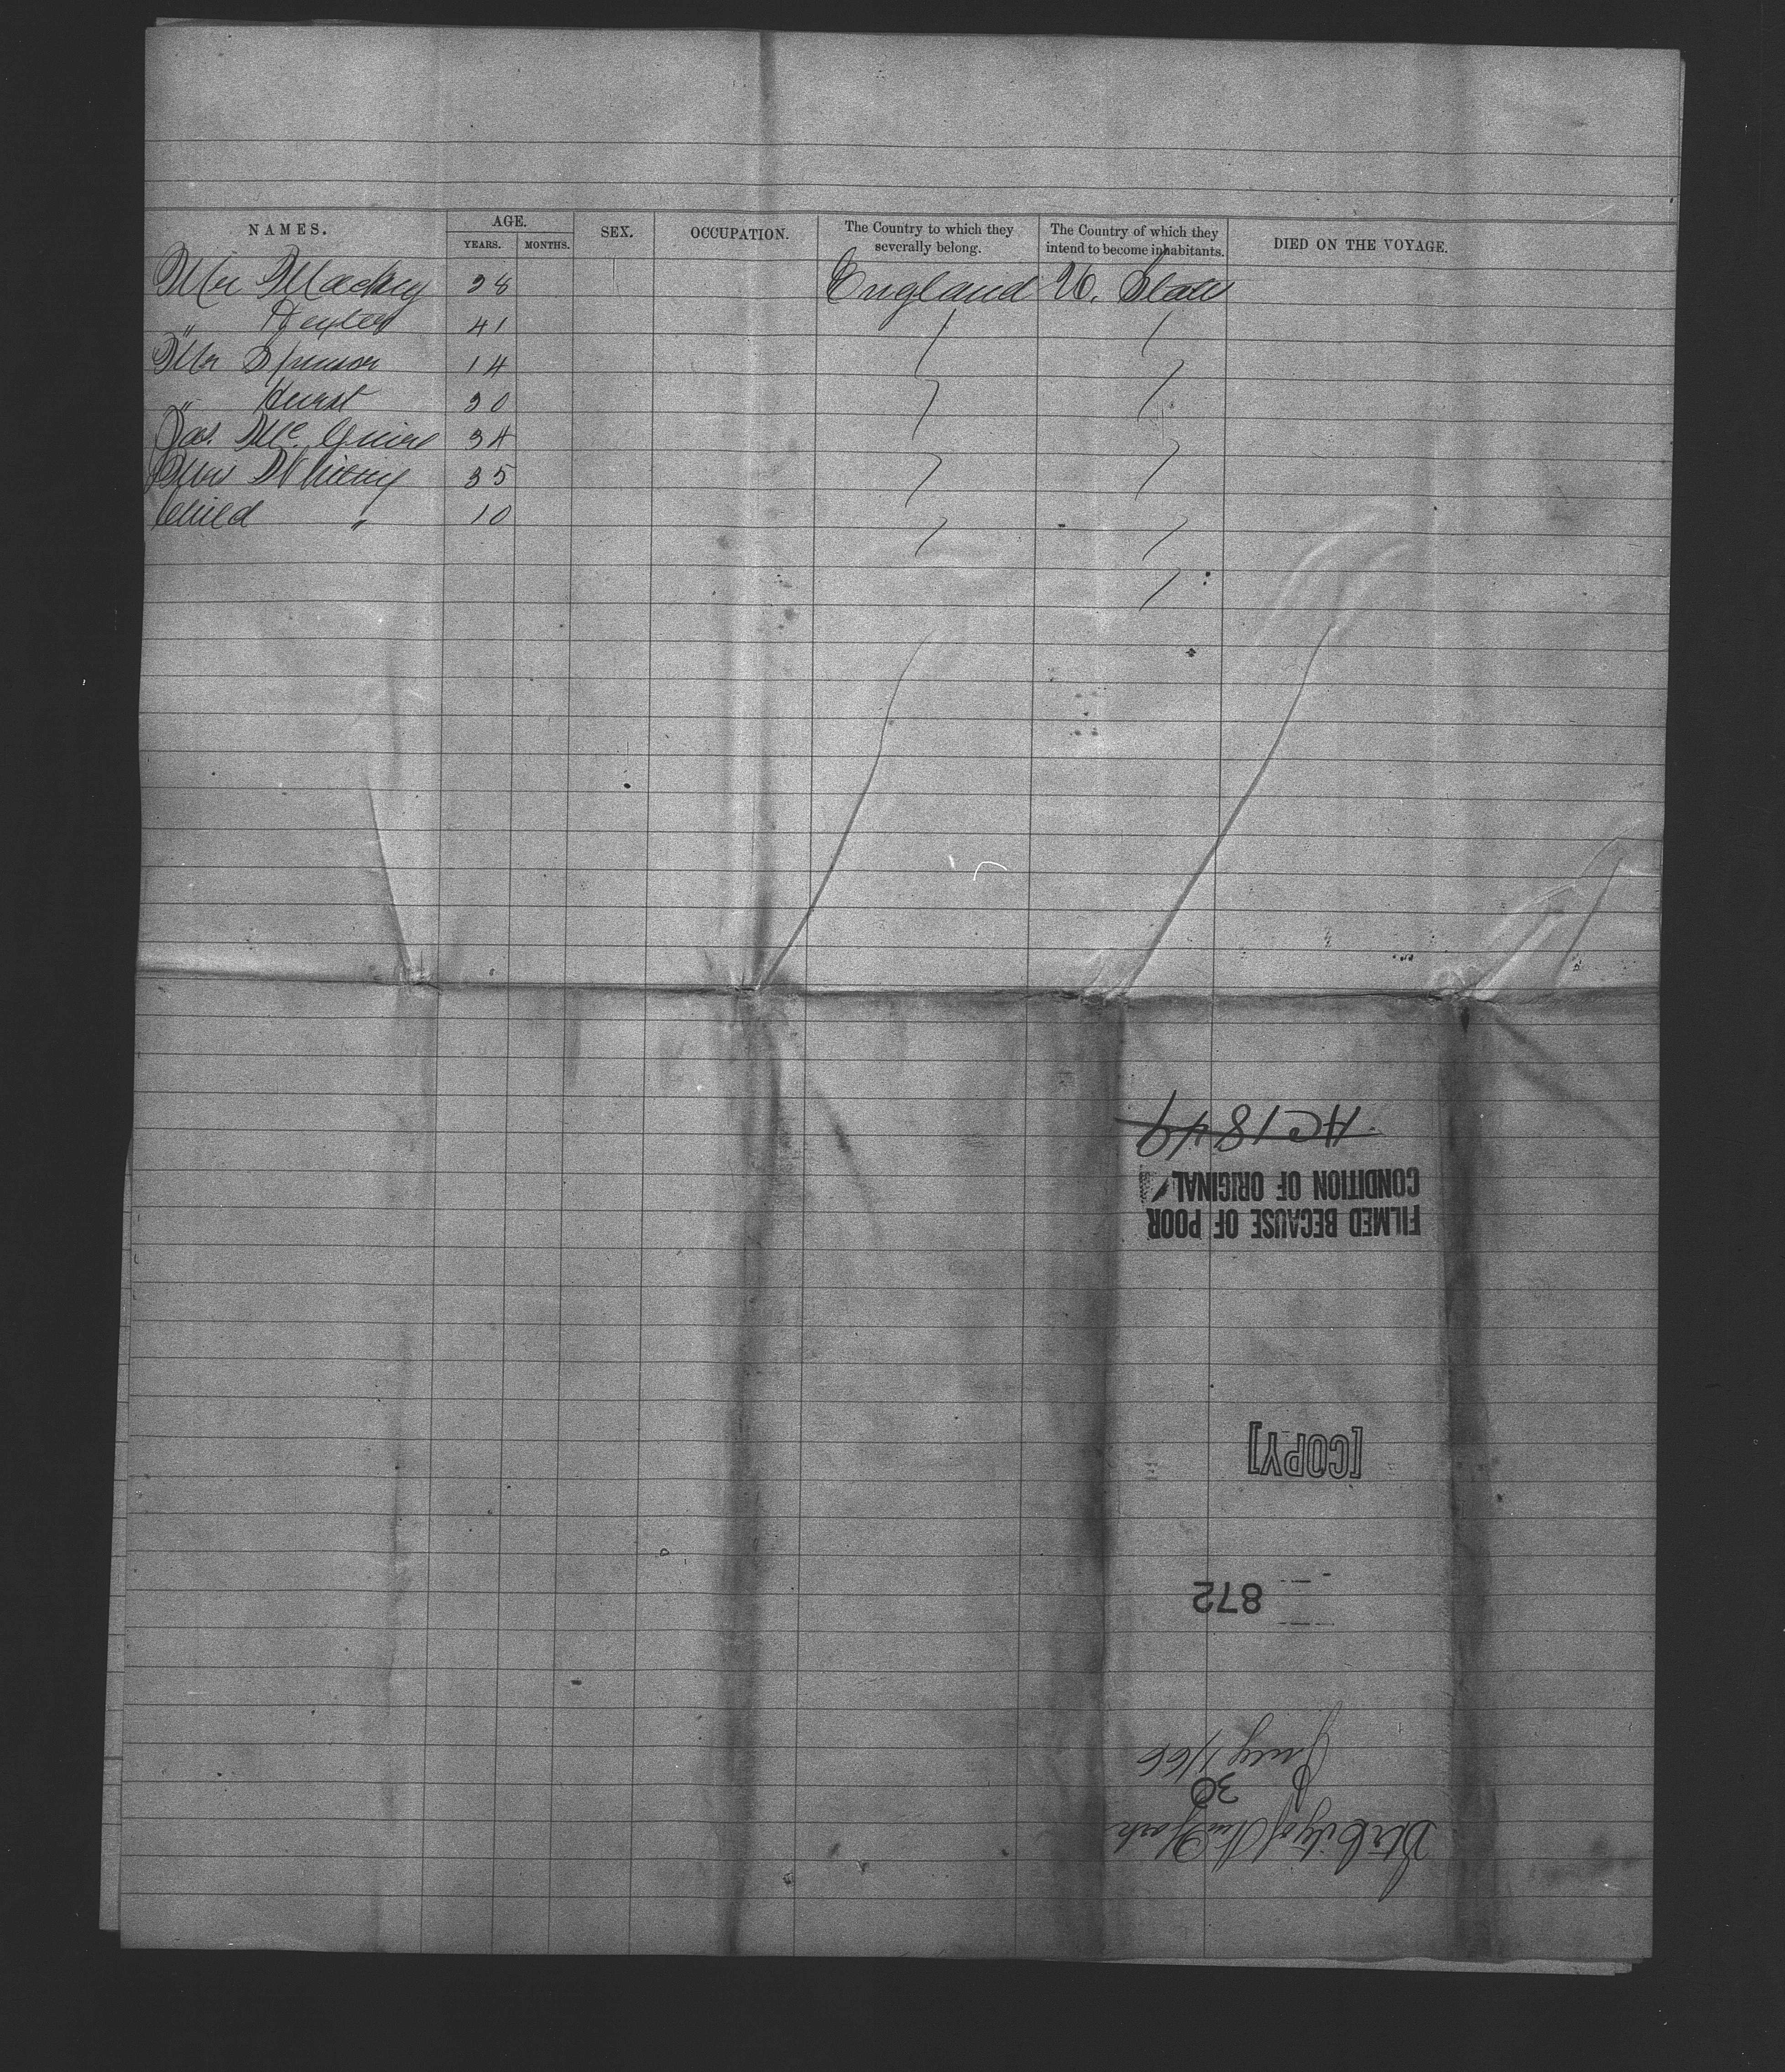 NAMES. AGE. SEX. OCCUPATION. The Country to which they severally belong. The Country of which they intend to become inhabitants. DIED ON THE VOYAGE.
YEARS. MONTHS.
Mr Mackey 28 England U. States
" 41 / /
Mr Spencer 14 / /
" Hurst 30 / /
Jas. McGuire 34 / /
Mrs Whitney 35 / /
Child " 10 /
Str City of New York
30
July 1/66
872
[COPY]
FILMED BECAUSE OF POOR
CONDITION OF ORIGINAL
AC 1849